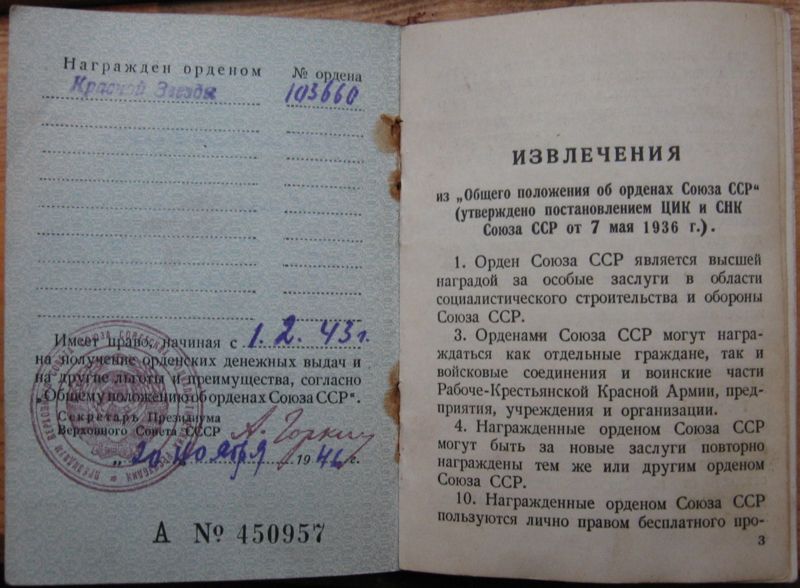 Награжден орденом № ордена
Красной Звезды 103660
Имеет право, начиная с 1.2.43 г.
на получение орденских денежных выдач и
на другие льготы и преимущества, согласно
„Общему положению об орденах Союза ССР“.
Секретарь Президиума
Верховного Совета СССР А. Горкин
„20 ноября 1946 г.
А № 450957
ИЗВЛЕЧЕНИЯ
из „Общего положения об орденах Союза ССР“
(утверждено постановлением ЦИК и СНК
Союза ССР от 7 мая 1936 г.).
1. Орден Союза ССР является высшей
наградой за особые заслуги в области
социалистического строительства и обороны
Союза ССР.
3. Орденами Союза ССР могут награ-
ждаться как отдельные граждане, так и
войсковые соединения и воинские части
Рабоче-Крестьянской Красной Армии, пред-
приятия, учреждения и организации.
4. Награжденные орденом Союза ССР
могут быть за новые заслуги повторно
награждены тем же или другим орденом
Союза ССР.
10. Награжденные орденом Союза ССР
пользуются лично правом бесплатного про-
3